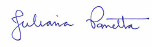 Juliana Panetta